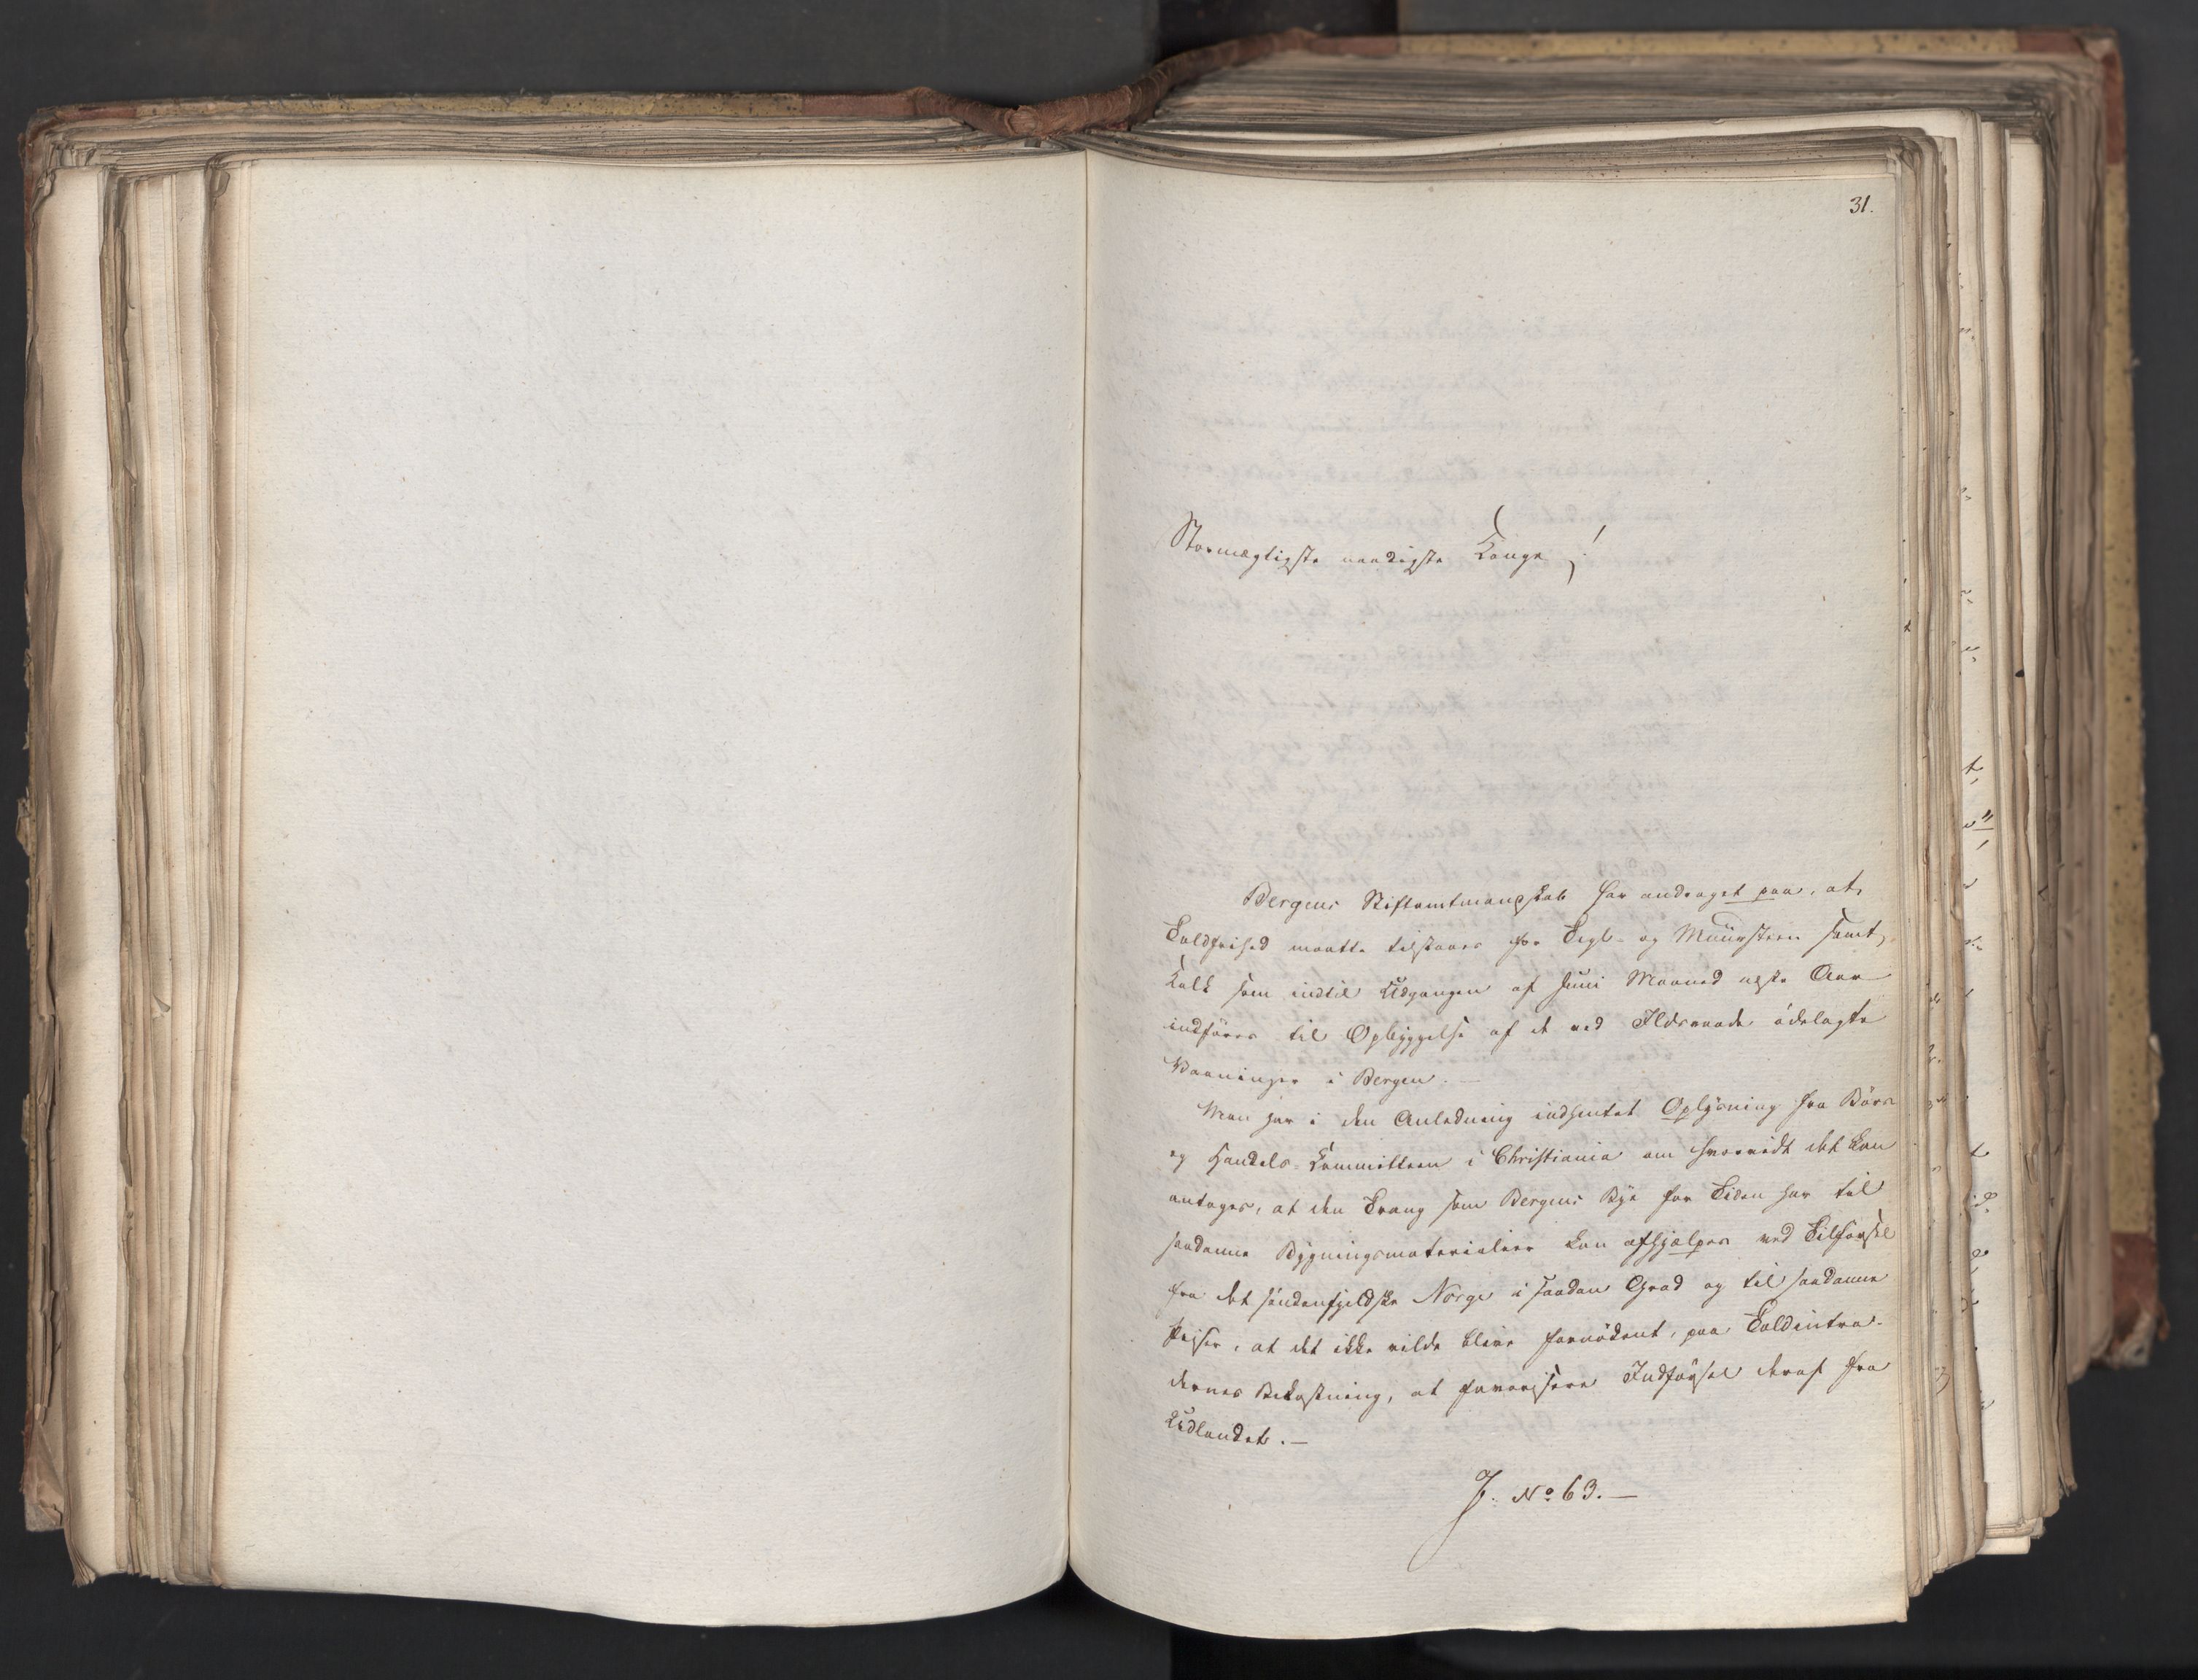 31.
Stormægtigste naadigste Konge!
Bergens Stiftamtmandskab har andraget paa, at
Toldfrihed maatte tilstaaes for Tegl- og Muursteen samt
Kalk som indtil Udgangen af Juni Maaned neste Aar
indføres til Opbyggelse af de ved Ildsvaade ødelagte
Vaaninger i Bergen. —
Man har i den Anledning indhentet Oplysning fra Børs
og Handels-Committeen i Christiania om hvorvidt det kan
antages, at den Trang som Bergens Bye for Tiden har til
saadanne Bygningsmaterialier kan afhjælpes ved Tilførsel
fra det søndenfjeldske Norge i saadan Grad og til saadanne
Priser, at det ikke vilde blive fornødent, paa Toldintra-
dernes Bekostning, at favorisere Indførsel deraf fra
Udlandet. —
J. No 63. —